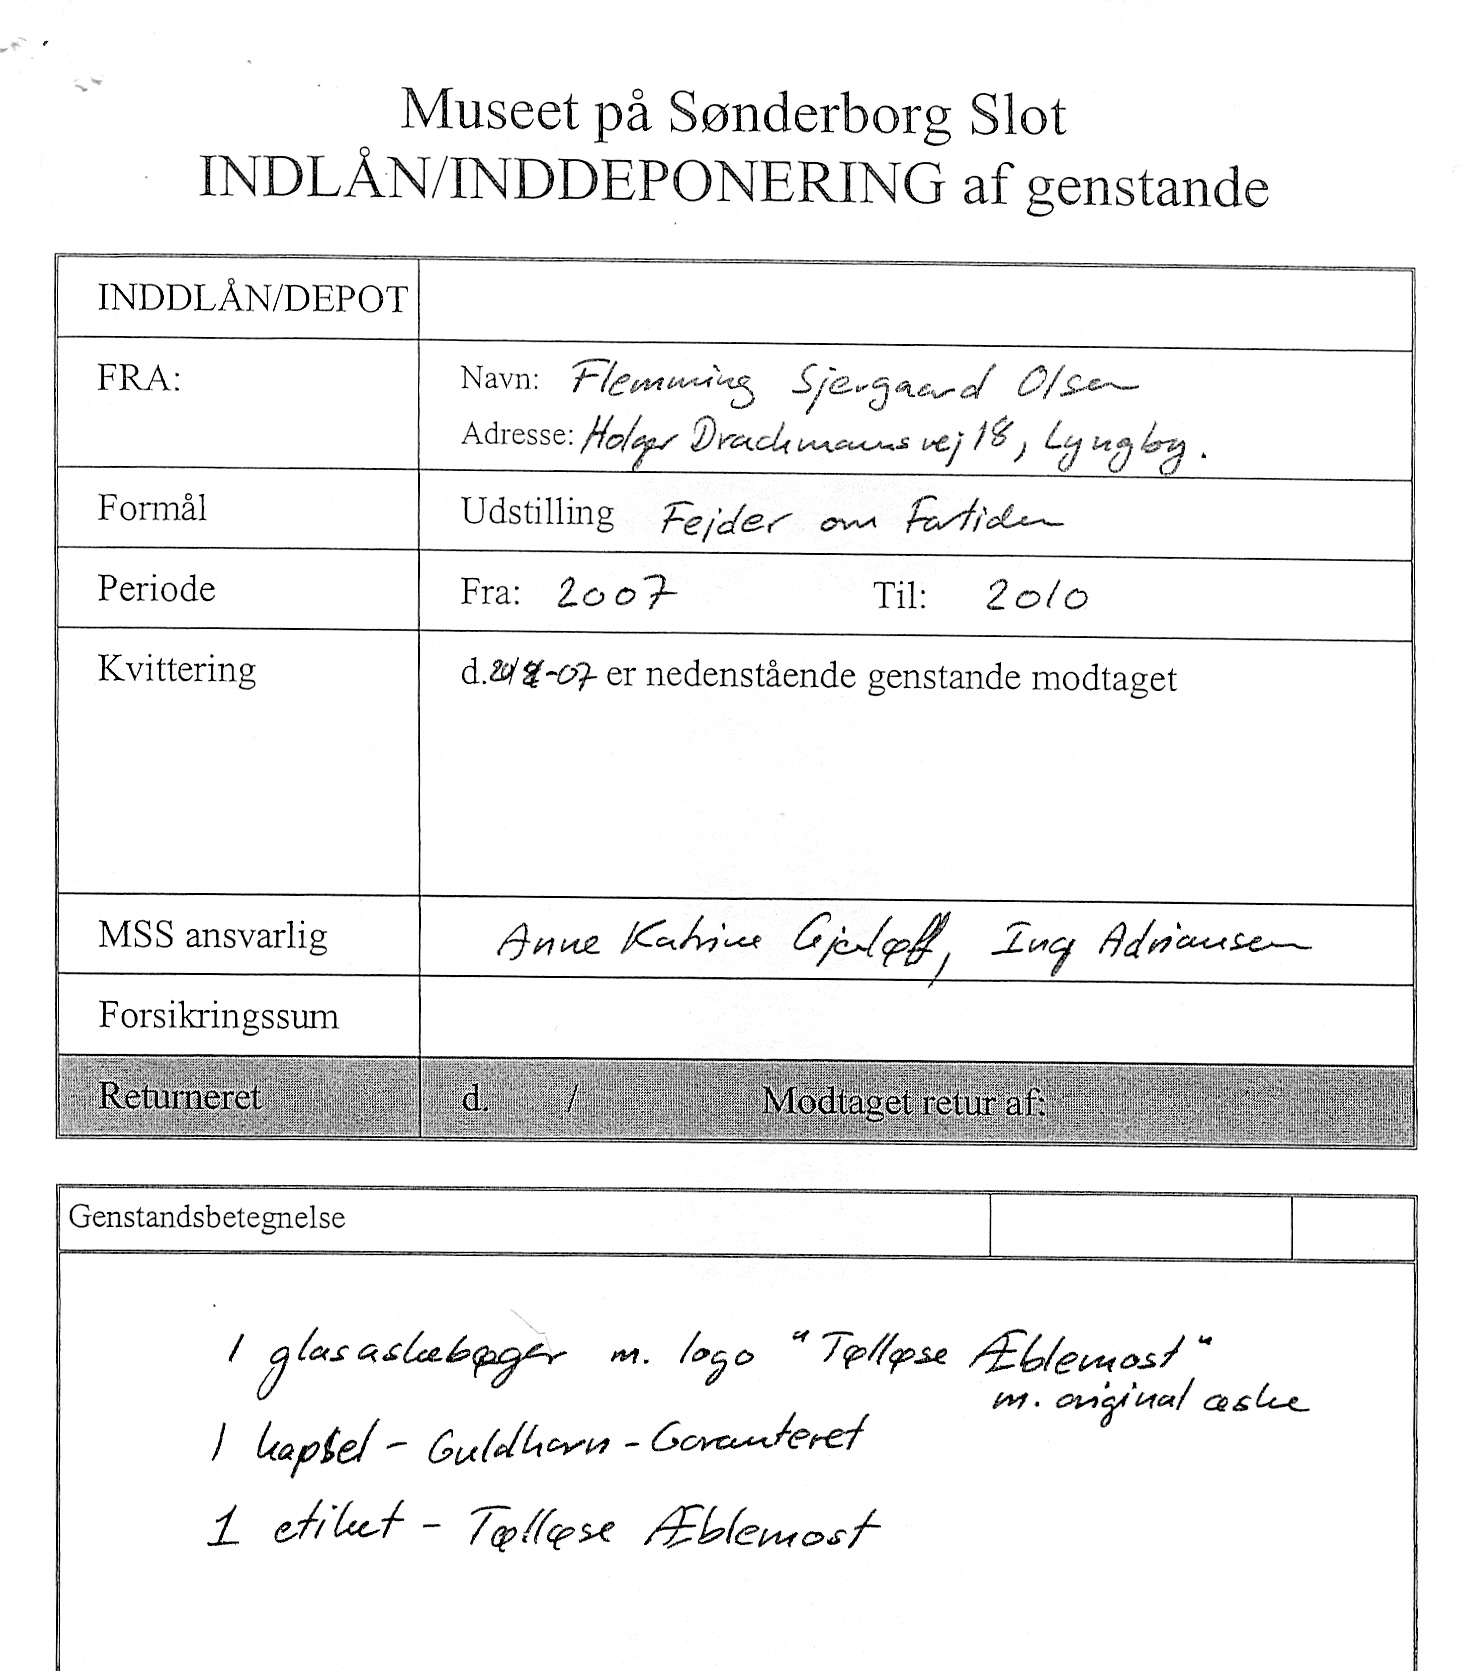 Museet på Sønderborg Slot
INDLÅN/INDDEPONERING af genstande
INDDLÅN/DEPOT
FRA:
Navn: Flemming Sjergaard Olsen
Adresse: Holger Drachmannsvej 18, Lyngby.
Formål
Udstilling Fejder om Fortiden
Periode
Fra: 2007 Til: 2010
Kvittering
d. -07 er nedenstående genstande modtaget
MSS ansvarlig
Anne Katrine Gjerløff, Inge Adriansen
Forsikringssum
Returneret
d. / Modtaget retur af:
Genstandsbetegnelse
1 glasaskebæger m. logo "Tølløse Æblemost"
m. original æske
1 kapsel - Guldhorn - Garanteret
1 etiket - Tølløse Æblemost